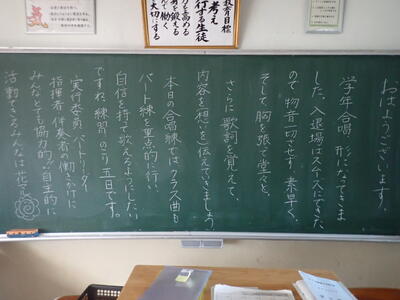 おはようございます。
学年合唱 形になってきま
した。入退場はスムーズにできた
ので 物音一つさせず、素早く、
そして 胸を張って堂々と。
さらに 歌詞を覚えて、
内容を(想いを)伝えていきましょう
本日の合唱練では クラス曲も
パート練を重点的に行い、
自信を持て歌えるようにしたい
ですね。練習 のこり 五日です。
実行委員、パートリーダー
指揮者、伴奏者の働きかけに
みんなとても協力的。自主的に
活動できるみんなは 花マル
教育目標
考え
行する生徒
を高める
を鍛える
んで働く
大切にす